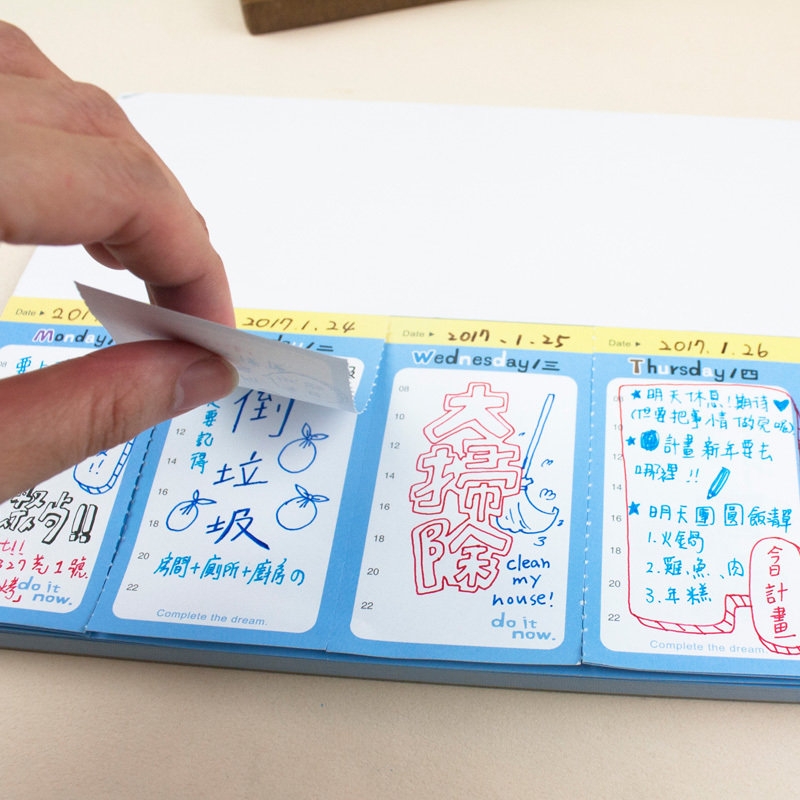 Date ▶ 201
Monday/
08
do it
now.
2017.1.24
day/二
要記得
倒
垃
圾
12
14
16
18
20
22
房間+廁所+廚房の
Complete the dream.
Date ▶ 2017.1.25
Wednesday/三
08
10
12
14
16
18
20
22
大
掃
除
clean
my
house!
do it
now.
Date ▶ 2017.1.26
Thursday/四
08
10
12
14
16
18
20
22
★明天休息!期待♥
(但要把事情做完喔)
計畫新年要去
哪裡!!
★明天團圓飯清單
1.火鍋
2.雞、魚、肉
3.年糕
今日計畫
Complete the dream.